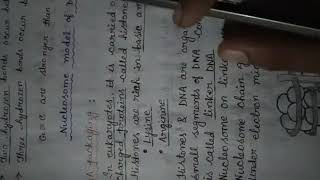 → Two hydrogen bonds occur be
→ Three hydrogen bonds occur b
G ≡ C are stronger than
Nucleosome model of D
packaging :
In eukaryotes it is carried o
charged proteins called histones
Histones are rich in basic am
• Lysine
• Arginine
Histones & DNA are orga
small segments of DNA con
is called linker DNA
Nucleosome on linker
Nucleosome chain g
under electron mic